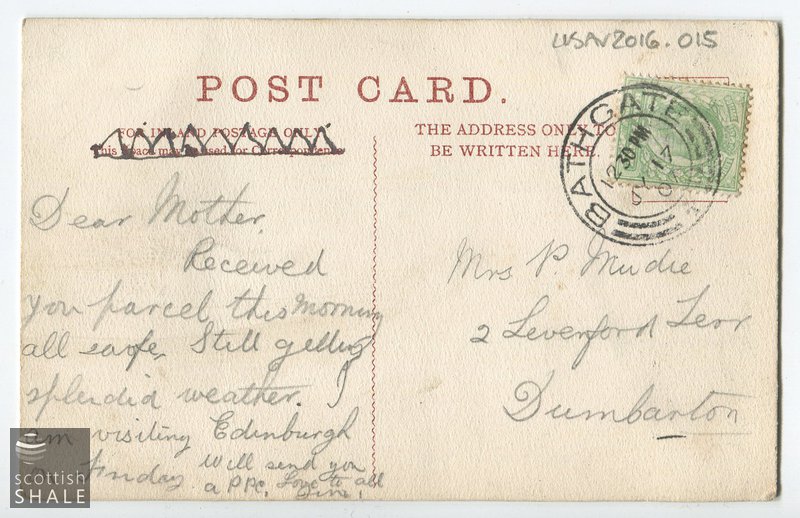 LVSAV2016.015
POST CARD.
FOR INLAND POSTAGE ONLY
This Space may be used for Correspondence
THE ADDRESS ONLY TO
BE WRITTEN HERE.
BATHGATE
12 30 PM
Dear Mother,
Received
you parcel this morning
all safe. Still getting
splendid weather. I
am visiting Edinburgh
on
Will send you
a PPC. Love to all
Mrs P Mudie
2 Levenford Terr
Dumbarton
scottish
SHALE